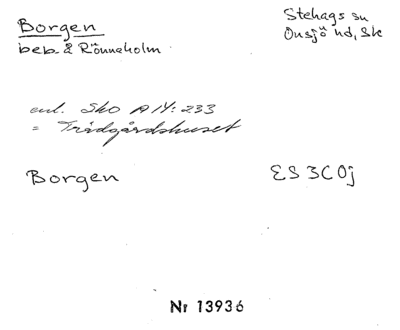 Borgen
beb. å Rönneholm
Stehags sn
Onsjö hd, Sk
enl. Sko A 14:233
= Trädgårdshuset
Borgen
ES 3C 0j
Nr 13936